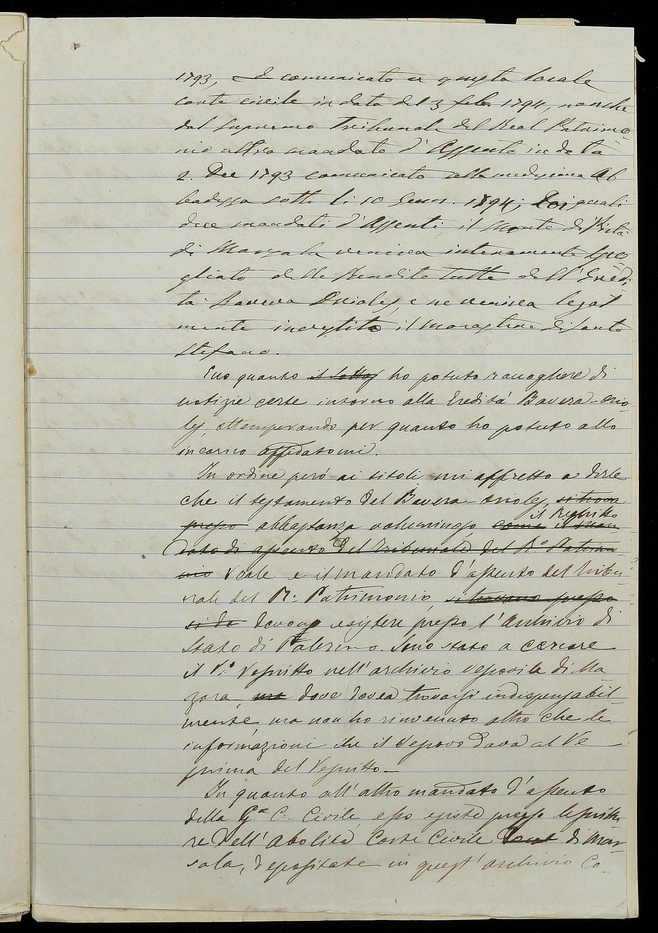 1793, e comunicato a questa locale
corte civile in data del 3 feb. 1794, nonchè
dal Supremo Tribunale del Real Patrimo-
nio altro mandato d'Assento in data
2. Dec 1793 comunicato alla medesima Ab
badessa sotto li 10 Genn. 1794; coi quali
due mandati d'Assento, il Monte di Pietà
di Marsala veniva interamente spo-
gliato delle Rendite tutte dell'Eredi-
tà Bavera Orioles, e ne veniva legal
mente investito il Monastero di Santo
Stefano.
quanto ho potuto raccogliere di
notizie certe intorno alla Eredità Bavera-Orio-
les, ottemperando per quanto ho potuto allo
incarico affidatomi.
In ordine però ai titoli mi affretto a dirle
che il testamento del Bavera-Orioles si trova
il Rescritto
presso abbastanza voluminoso come il man
dato di assento del Tribunale del R.o Patrimo-
nio Reale e il mandato d'assento del Tribu-
nale del R.o Patrimonio, si trovano presso
devono esistere presso l'Archivio di
Stato di Palermo. Sono stato a cercare
il R.o Rescritto nell'archivio vescovile di Ma
zara, ma dove dovea trovarsi indispensabil-
mente, ma non ho rinvenuto altro che le
informazioni che il Vescovo dava al Re
prima del Rescritto_
In quanto all'altro mandato d'assento
della G.a C. Civile esso esiste presso le scrittu
re dell'Abolita Corte Civile di Mar-
sala, depositate in quest'archivio Co-